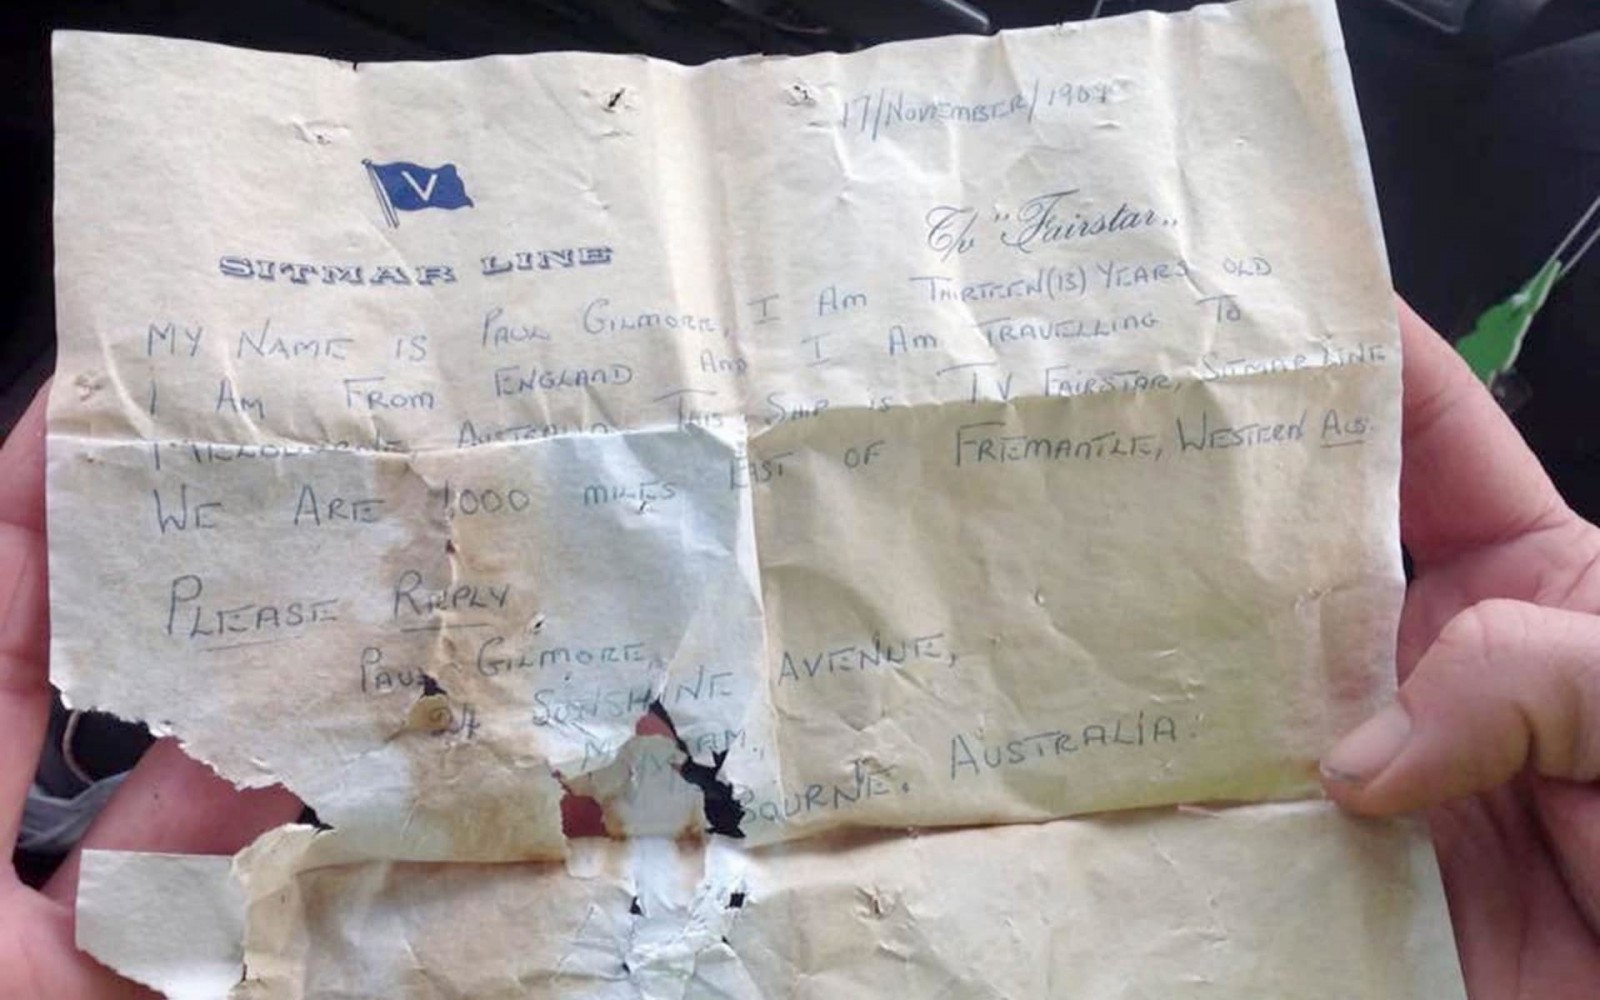 17/NOVEMBER/1969
V
SITMAR LINE
T/v "Fairstar"
MY NAME IS PAUL GILMORE, I AM THIRTEEN (13) YEARS OLD
I AM FROM ENGLAND AND I AM TRAVELLING TO
MELBOURNE, AUSTRALIA THIS SHIP IS TV FAIRSTAR, SITMAR LINE
WE ARE 1000 MILES EAST OF FREMANTLE, WESTERN AUS.
PLEASE REPLY
PAUL GILMORE,
24 SUNSHINE AVENUE,
BOURNE, AUSTRALIA.